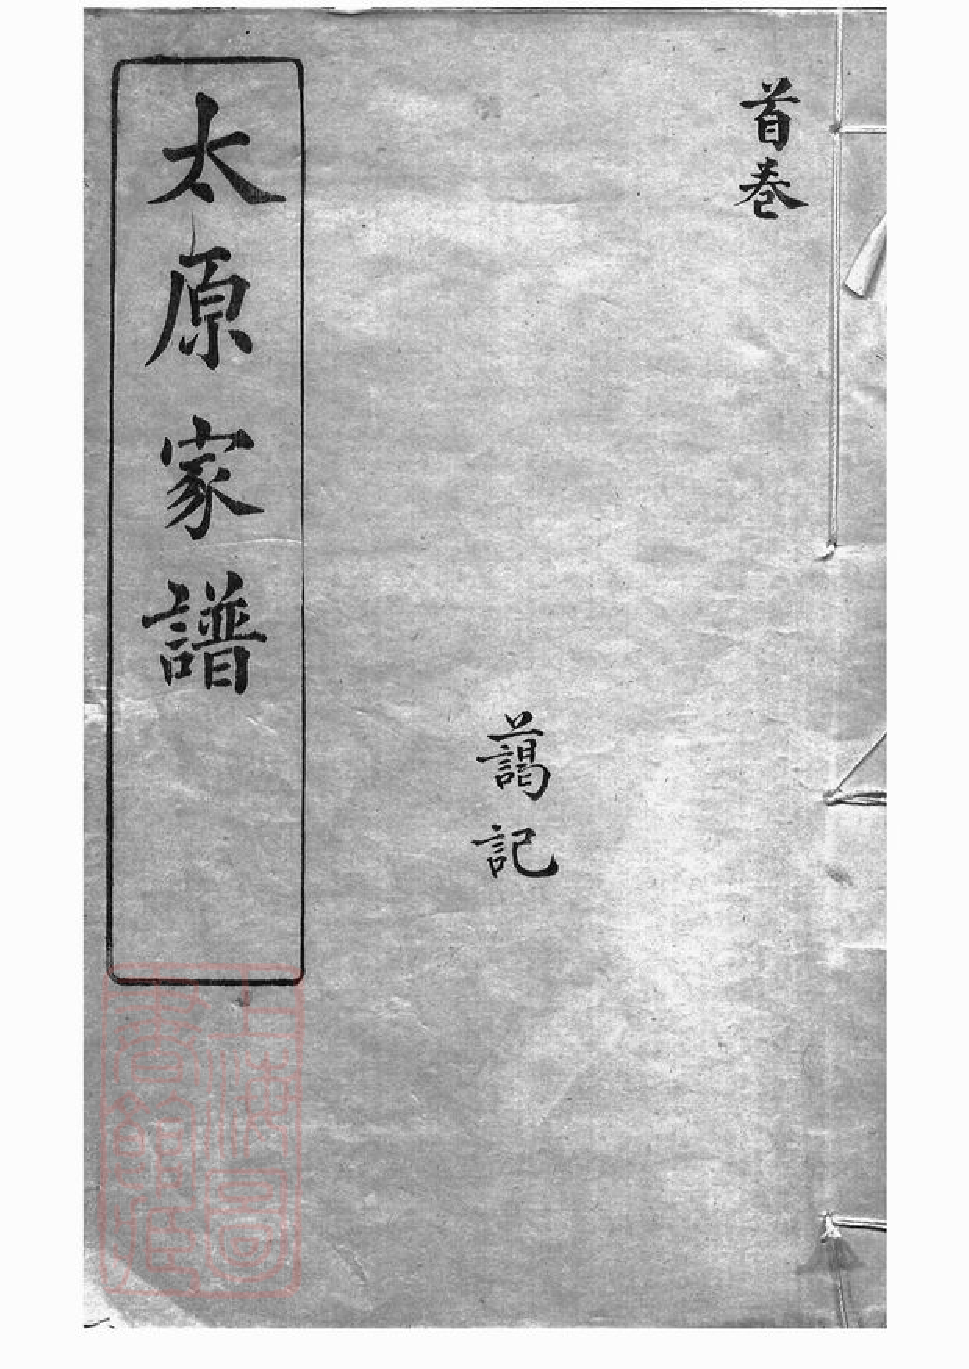 首卷
藹記
太原家譜
上海圖書館藏